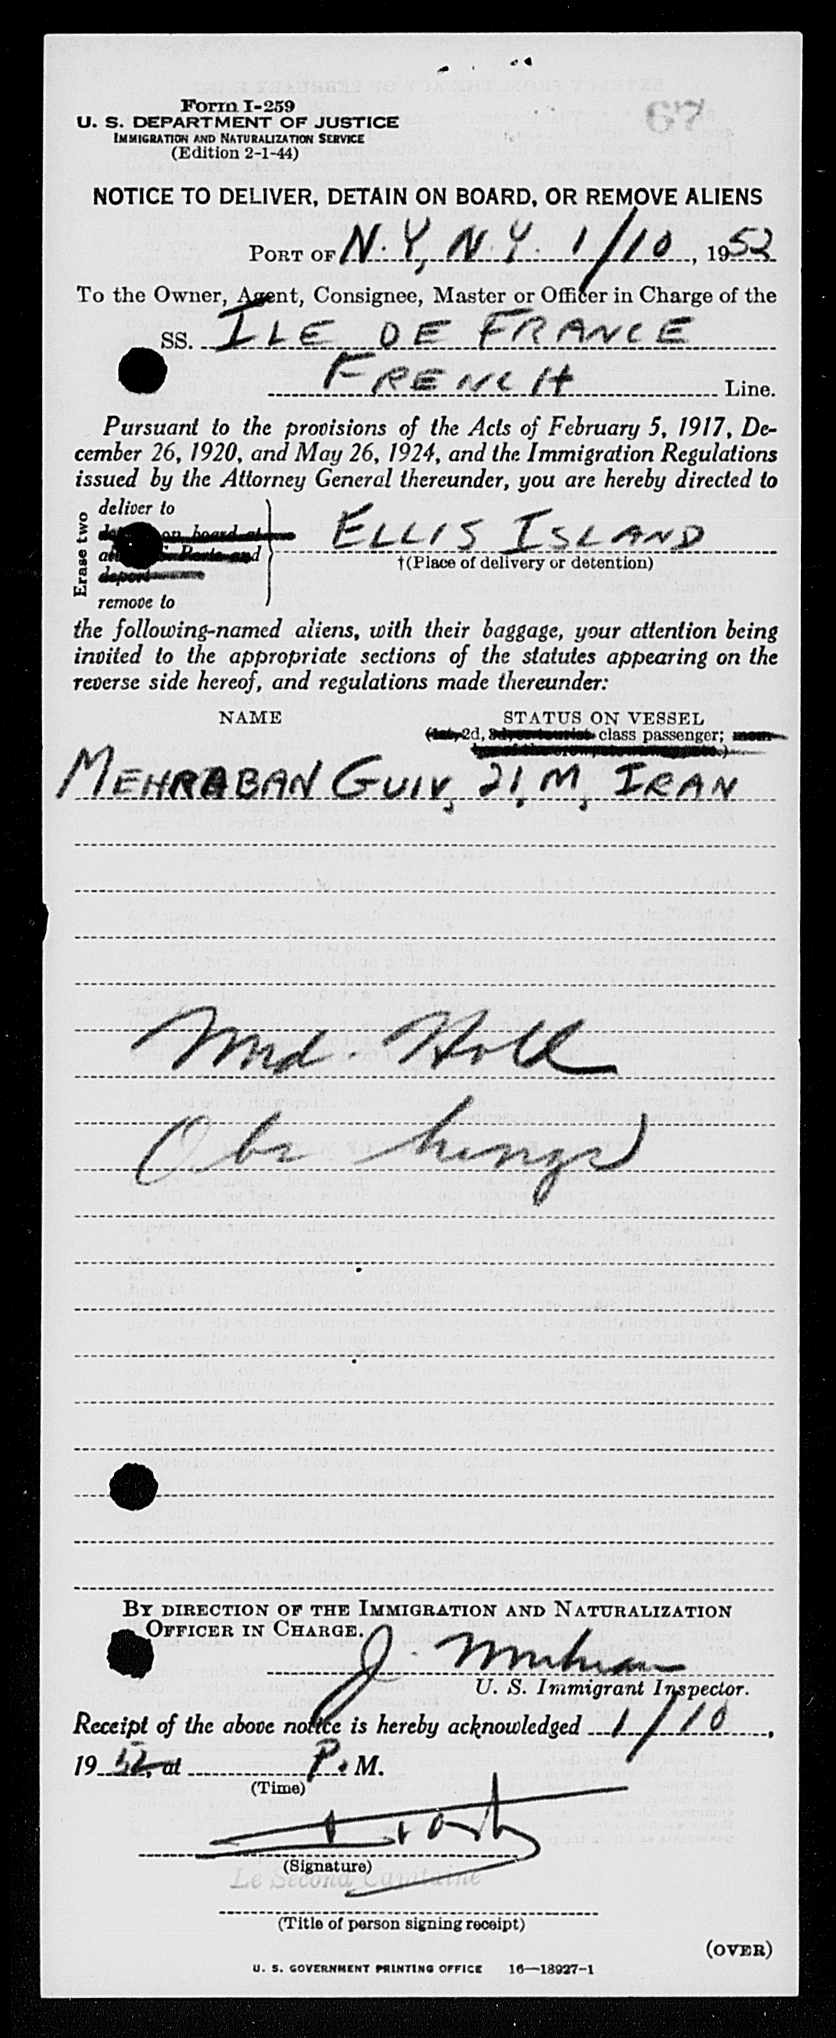 67
Form I-259
U. S. DEPARTMENT OF JUSTICE
IMMIGRATION AND NATURALIZATION SERVICE
(Edition 2-1-44)
NOTICE TO DELIVER, DETAIN ON BOARD, OR REMOVE ALIENS
PORT OF N.Y, N.Y. 1/10, 1952
To the Owner, Agent, Consignee, Master or Officer in Charge of the
SS. ILE DE FRANCE
FRENCH Line.
Pursuant to the provisions of the Acts of February 5, 1917, De-
cember 26, 1920, and May 26, 1924, and the Immigration Regulations
issued by the Attorney General thereunder, you are hereby directed to
Erase two
deliver to
on board at
ELLIS ISLAND
Ports and
†(Place of delivery or detention)
deport
remove to
the following-named aliens, with their baggage, your attention being
invited to the appropriate sections of the statutes appearing on the
reverse side hereof, and regulations made thereunder:
NAME STATUS ON VESSEL
(1st, 2d, class passenger;
MEHRABAN GUIV, 21, M, IRAN
Med. Hold
Obs
BY DIRECTION OF THE IMMIGRATION AND NATURALIZATION
OFFICER IN CHARGE.
J.
U. S. Immigrant Inspector.
Receipt of the above notice is hereby acknowledged 1/10,
1952, at P. M.
(Time)
(Signature)
Le Second Capitaine
(Title of person signing receipt)
(OVER)
U. S. GOVERNMENT PRINTING OFFICE 16—18927-1